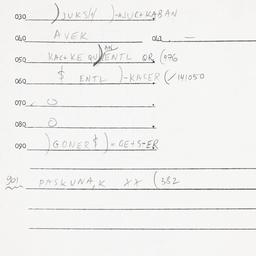 030 )JUKSH )-NUC+KABAN
040 AVEK 041 —
050 KAC+KE QU)ENTL OR (076
060 $ ENTL )-KASER (/141050
070 O
080 O
090 )GONER$)=GE+S-ER
901 PASKUNA,K XX (382